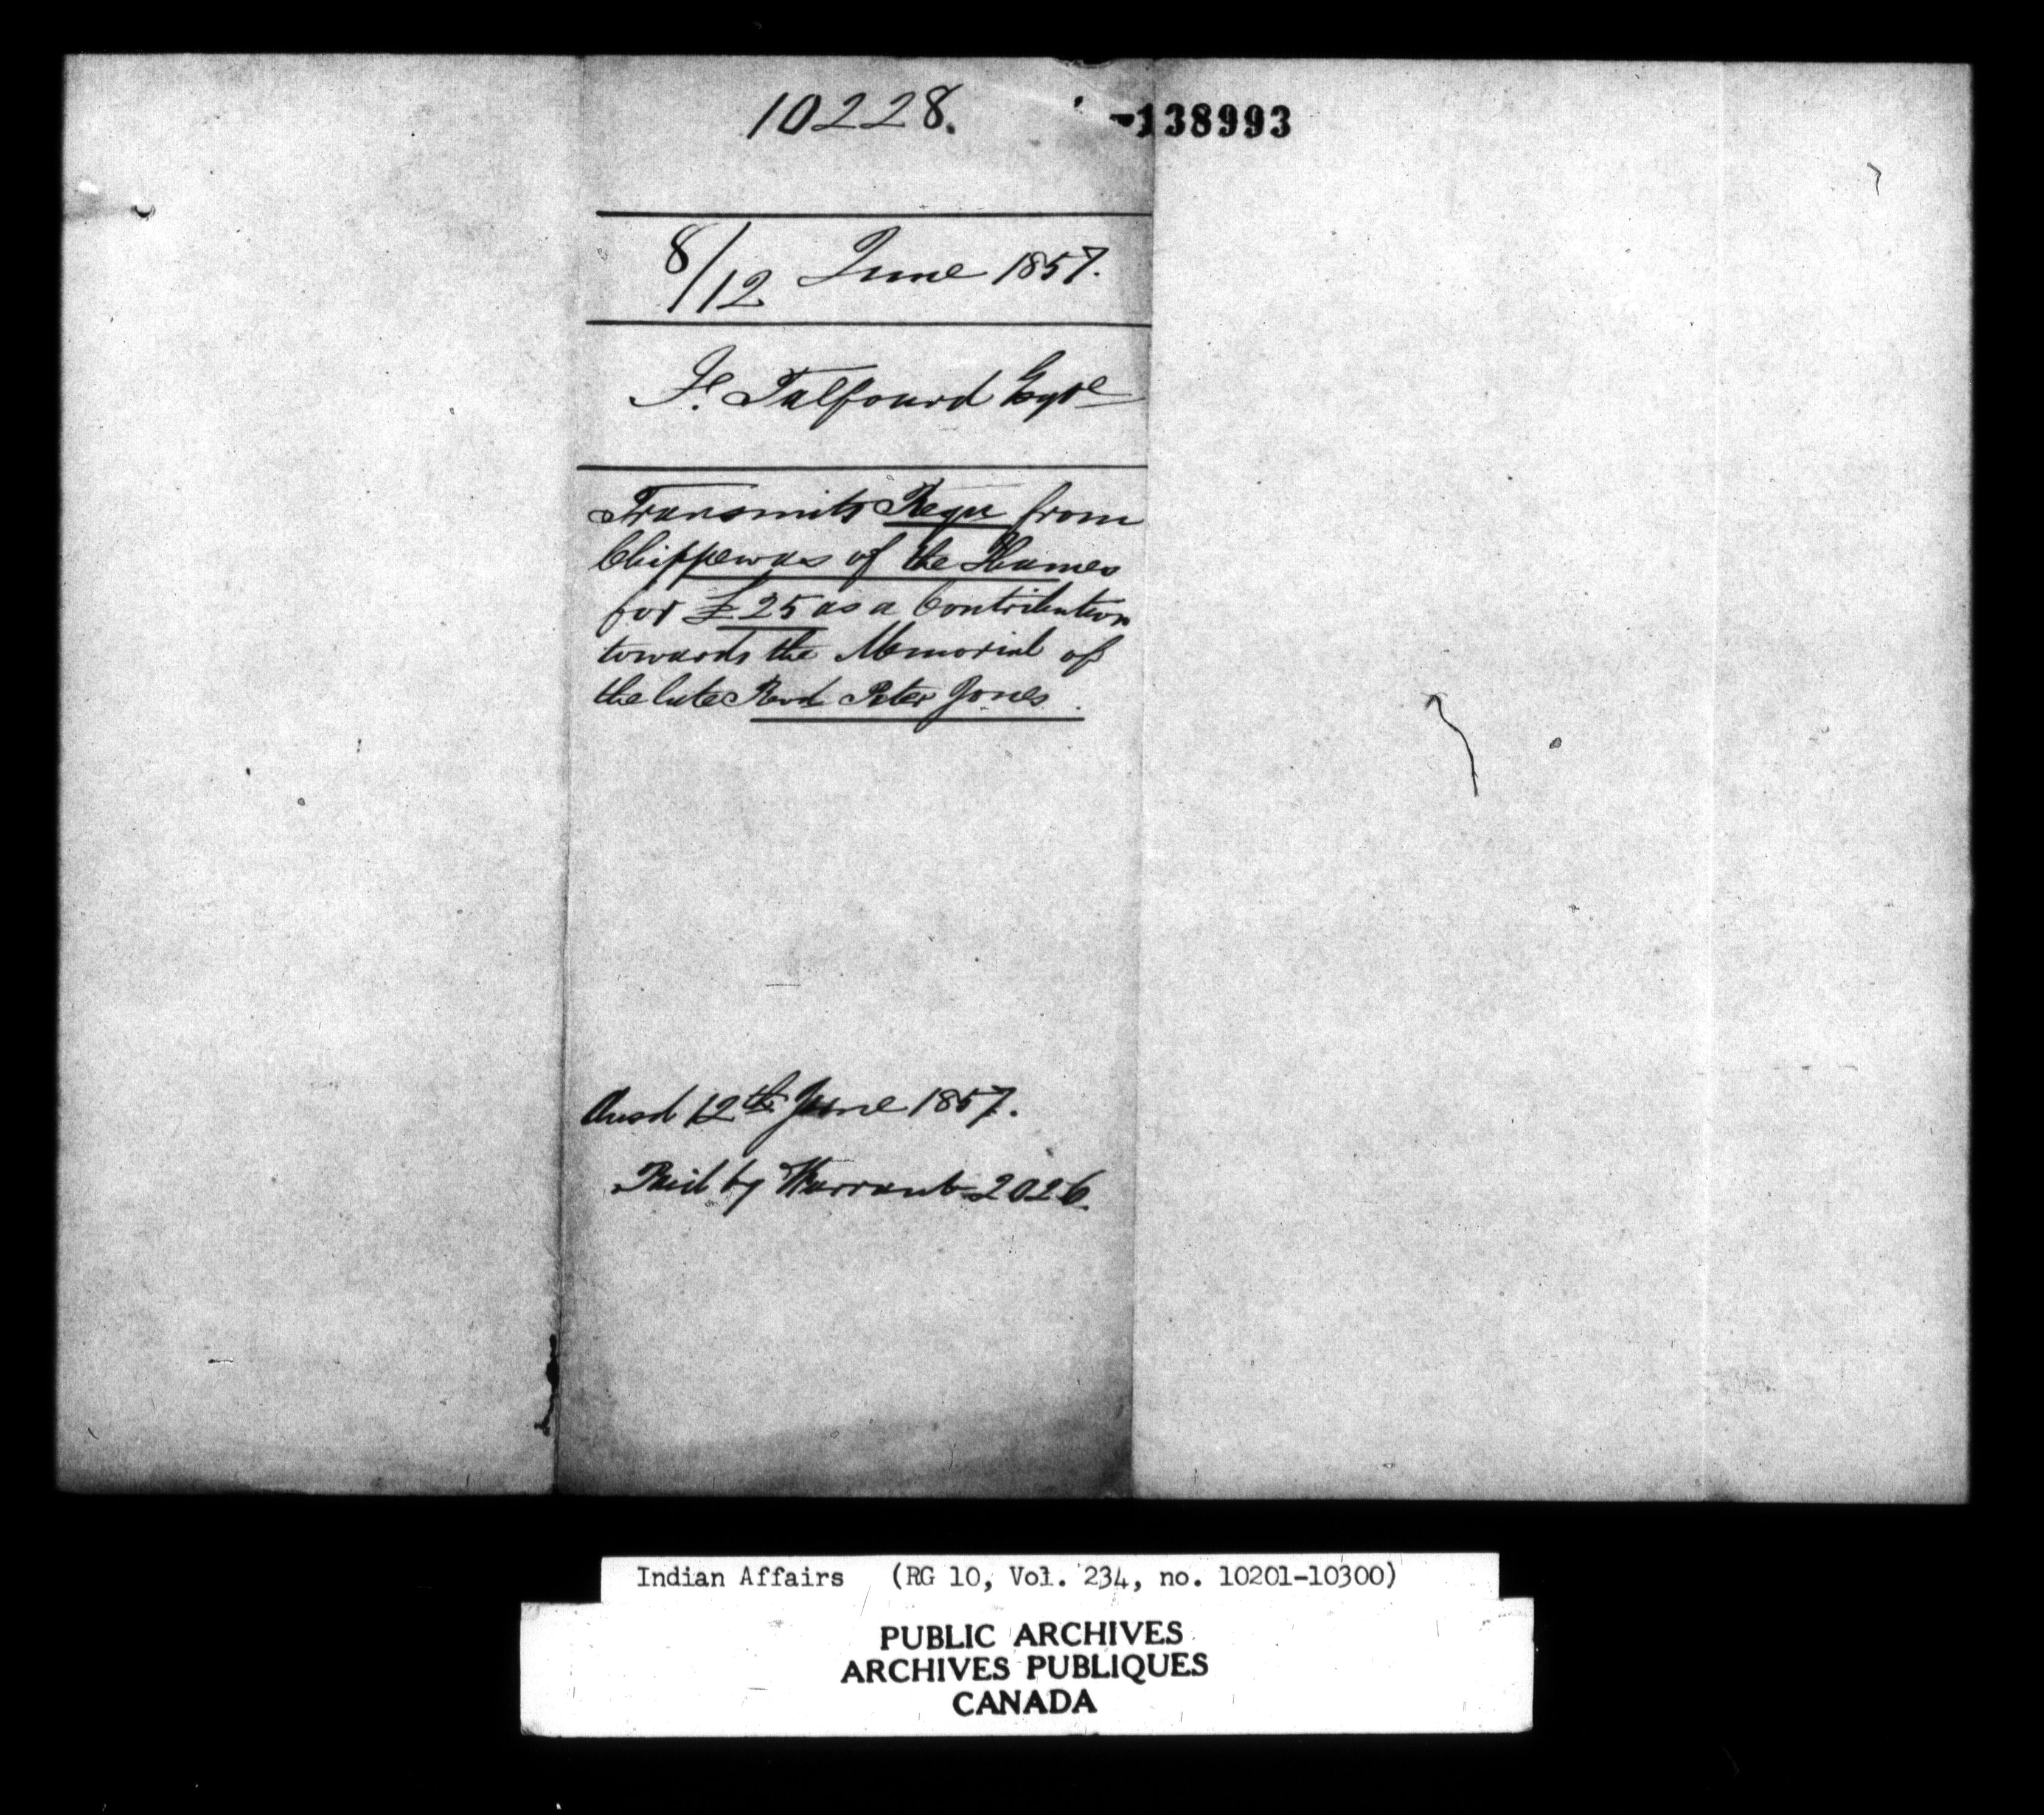 10228.
138993
8/12 June 1857.
F. Talfourd Esqre
Transmits Requ from
Chippewas of the Thames
for £25 as a Contribution
towards the Memorial of
the late Revd Peter Jones.
Ansd 12th June 1857.
Paid by Warrant 2026.
Indian Affairs (RG 10, Vol. 234, no. 10201-10300)
PUBLIC ARCHIVES
ARCHIVES PUBLIQUES
CANADA